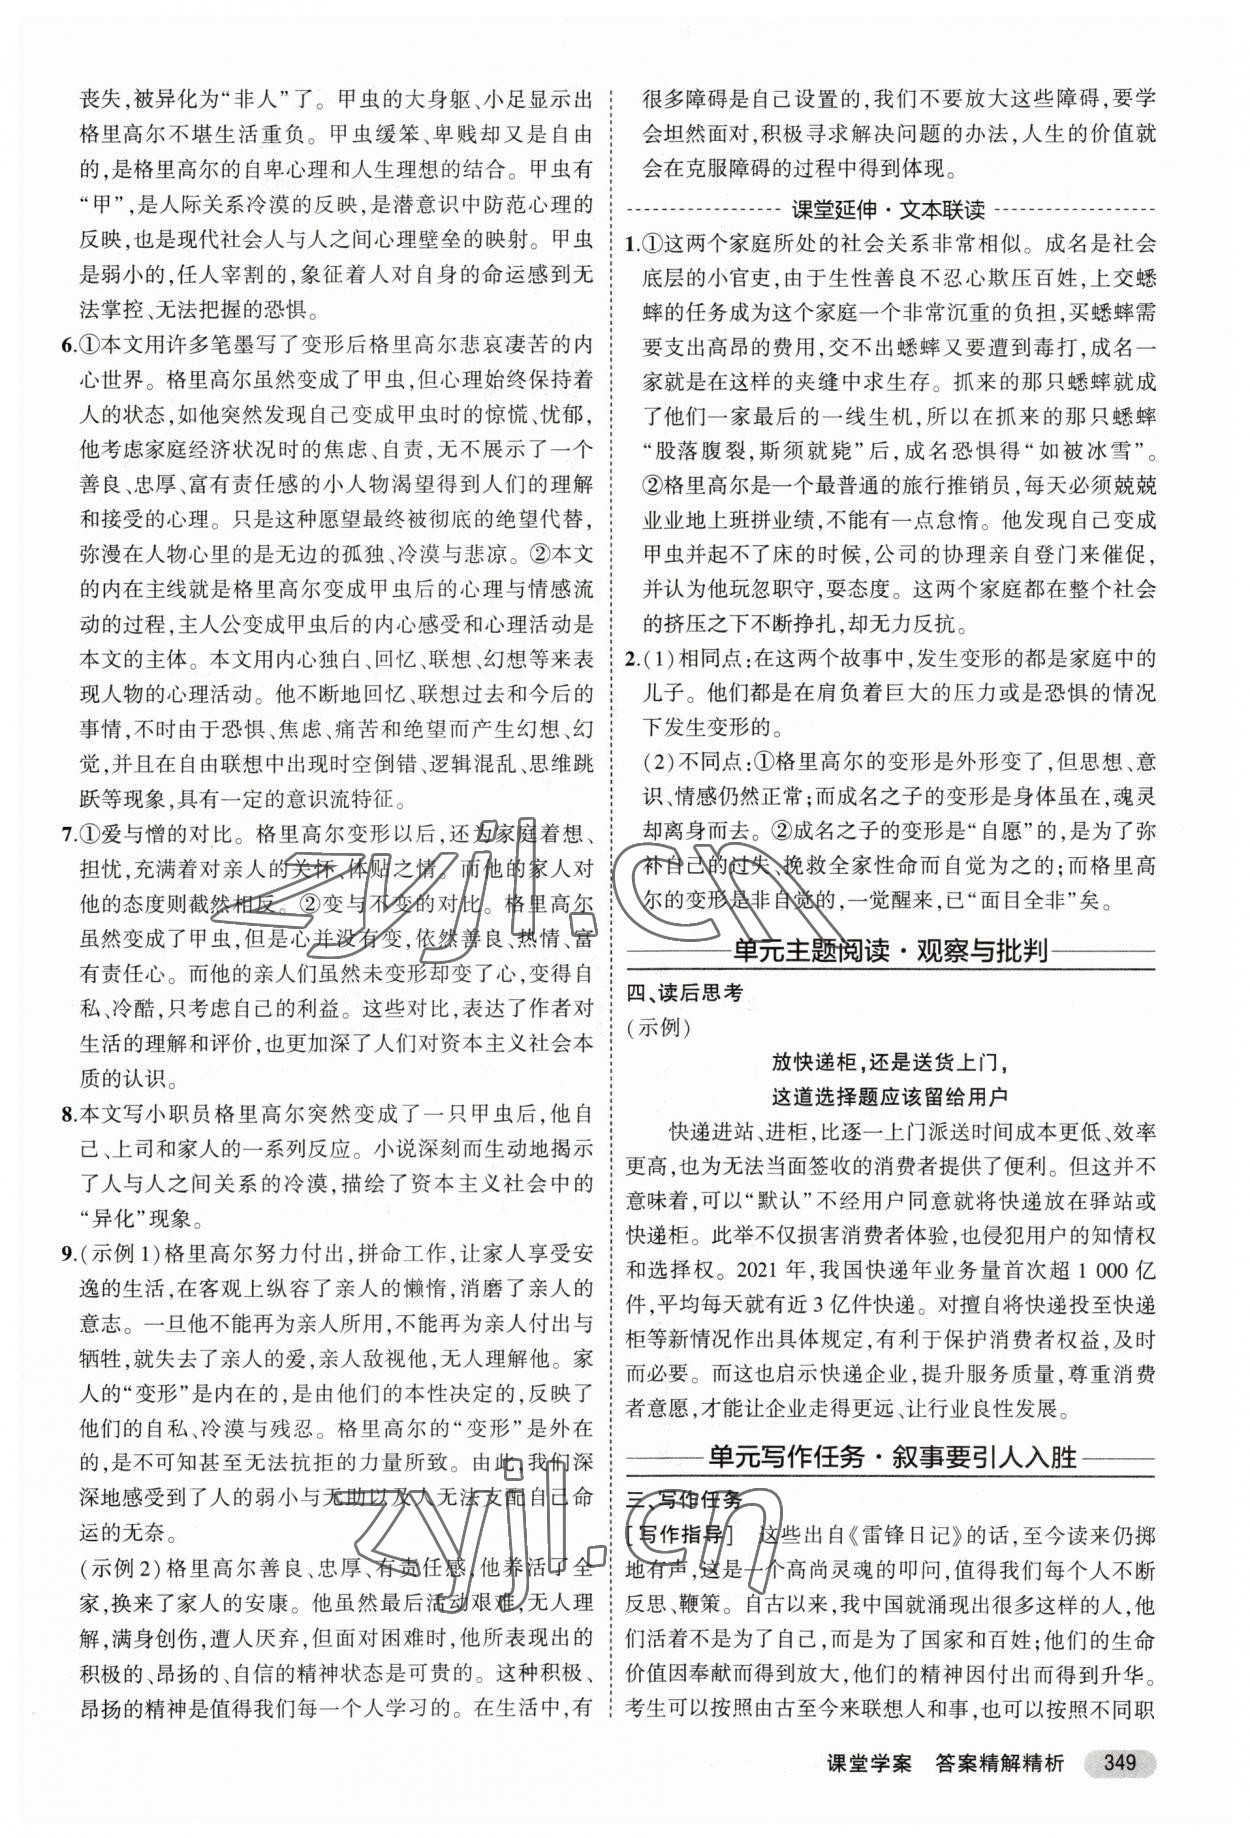 丧失,被异化为“非人”了。甲虫的大身躯、小足显示出
格里高尔不堪生活重负。甲虫缓笨、卑贱却又是自由
的,是格里高尔的自卑心理和人生理想的结合。甲虫有
“甲”,是人际关系冷漠的反映,是潜意识中防范心理的
反映,也是现代社会人与人之间心理壁垒的映射。甲虫
是弱小的、任人宰割的,象征着人对自身的命运感到无
法掌控、无法把握的恐惧。
6.①本文用许多笔墨写了变形后格里高尔悲哀凄苦的内
心世界。格里高尔虽然变成了甲虫,但心理始终保持着
人的状态,如他突然发现自己变成甲虫时的惊慌、忧郁,
他考虑家庭经济状况时的焦虑、自责,无不展示了一个
善良、忠厚、富有责任感的小人物渴望得到人们的理解
和接受的心理。只是这种愿望最终被彻底的绝望代替,
弥漫在人物心里的是无边的孤独、冷漠与悲凉。②本文
的内在主线就是格里高尔变成甲虫后的心理与情感流
动的过程,主人公变成甲虫后的内心感受和心理活动是
本文的主体。本文用内心独白、回忆、联想、幻想等来表
现人物的心理活动。他不断地回忆、联想过去和今后的
事情,不时由于恐惧、焦虑、痛苦和绝望而产生幻想、幻
觉,并且在自由联想中出现时空倒错、逻辑混乱、思维跳
跃等现象,具有一定的意识流特征。
7.①爱与憎的对比。格里高尔变形以后,还为家庭着想、
担忧,充满着对亲人的关怀、体贴之情。而他的家人对
他的态度则截然相反。②变与不变的对比。格里高尔
虽然变成了甲虫,但是心并没有变,依然善良、热情、富
有责任心。而他的亲人们虽然未变形却变了心,变得自
私、冷酷,只考虑自己的利益。这些对比,表达了作者对
生活的理解和评价,也更加深了人们对资本主义社会本
质的认识。
8.本文写小职员格里高尔突然变成了一只甲虫后,他自
己、上司和家人的一系列反应。小说深刻而生动地揭示
了人与人之间关系的冷漠,描绘了资本主义社会中的
“异化”现象。
9.(示例1)格里高尔努力付出,拼命工作,让家人享受安
逸的生活,在客观上纵容了亲人的懒惰,消磨了亲人的
意志。一旦他不能再为亲人所用,不能再为亲人付出与
牺牲,就失去了亲人的爱,亲人敌视他,无人理解他。家
人的“变形”是内在的,是由他们的本性决定的,反映了
他们的自私、冷漠与残忍。格里高尔的“变形”是外在
的,是不可知甚至无法抗拒的力量所致。由此,我们深
深地感受到了人的弱小与无助以及人无法支配自己命
运的无奈。
(示例2)格里高尔善良、忠厚、有责任感,他养活了全
家,换来了家人的安康。他虽然最后活动艰难,无人理
解,满身创伤,遭人厌弃,但面对困难时,他所表现出的
积极的、昂扬的、自信的精神状态是可贵的。这种积极、
昂扬的精神是值得我们每一个人学习的。在生活中,有
很多障碍是自己设置的,我们不要放大这些障碍,要学
会坦然面对,积极寻求解决问题的办法,人生的价值就
会在克服障碍的过程中得到体现。
课堂延伸·文本联读
1.①这两个家庭所处的社会关系非常相似。成名是社会
底层的小官吏,由于生性善良不忍心欺压百姓,上交蟋
蟀的任务成为这个家庭一个非常沉重的负担,买蟋蟀需
要支出高昂的费用,交不出蟋蟀又要遭到毒打,成名一
家就是在这样的夹缝中求生存。抓来的那只蟋蟀就成
了他们一家最后的一线生机,所以在抓来的那只蟋蟀
“股落腹裂,斯须就毙”后,成名恐惧得“如被冰雪”。
②格里高尔是一个最普通的旅行推销员,每天必须兢兢
业业地上班拼业绩,不能有一点怠惰。他发现自己变成
甲虫并起不了床的时候,公司的协理亲自登门来催促,
并认为他玩忽职守、耍态度。这两个家庭都在整个社会
的挤压之下不断挣扎,却无力反抗。
2.(1)相同点:在这两个故事中,发生变形的都是家庭中的
儿子。他们都是在肩负着巨大的压力或是恐惧的情况
下发生变形的。
(2)不同点:①格里高尔的变形是外形变了,但思想、意
识、情感仍然正常;而成名之子的变形是身体虽在,魂灵
却离身而去。②成名之子的变形是“自愿”的,是为了弥
补自己的过失、挽救全家性命而自觉为之的;而格里高
尔的变形是非自觉的,一觉醒来,已“面目全非”矣。
单元主题阅读·观察与批判
四、读后思考
(示例)
放快递柜,还是送货上门,
这道选择题应该留给用户
快递进站、进柜,比逐一上门派送时间成本更低、效率
更高,也为无法当面签收的消费者提供了便利。但这并不
意味着,可以“默认”不经用户同意就将快递放在驿站或
快递柜。此举不仅损害消费者体验,也侵犯用户的知情权
和选择权。2021年,我国快递年业务量首次超1 000亿
件,平均每天就有近3亿件快递。对擅自将快递投至快递
柜等新情况作出具体规定,有利于保护消费者权益,及时
而必要。而这也启示快递企业,提升服务质量,尊重消费
者意愿,才能让企业走得更远、让行业良性发展。
单元写作任务·叙事要引人入胜
三、写作任务
[写作指导] 这些出自《雷锋日记》的话,至今读来仍掷
地有声,这是一个高尚灵魂的叩问,值得我们每个人不断
反思、鞭策。自古以来,我中国就涌现出很多这样的人,他
们活着不是为了自己,而是为了国家和百姓;他们的生命
价值因奉献而得到放大,他们的精神因付出而得到升华。
考生可以按照由古至今来联想人和事,也可以按照不同职
课堂学案 答案精解精析 349
zyjl.cn
zyjl.cn